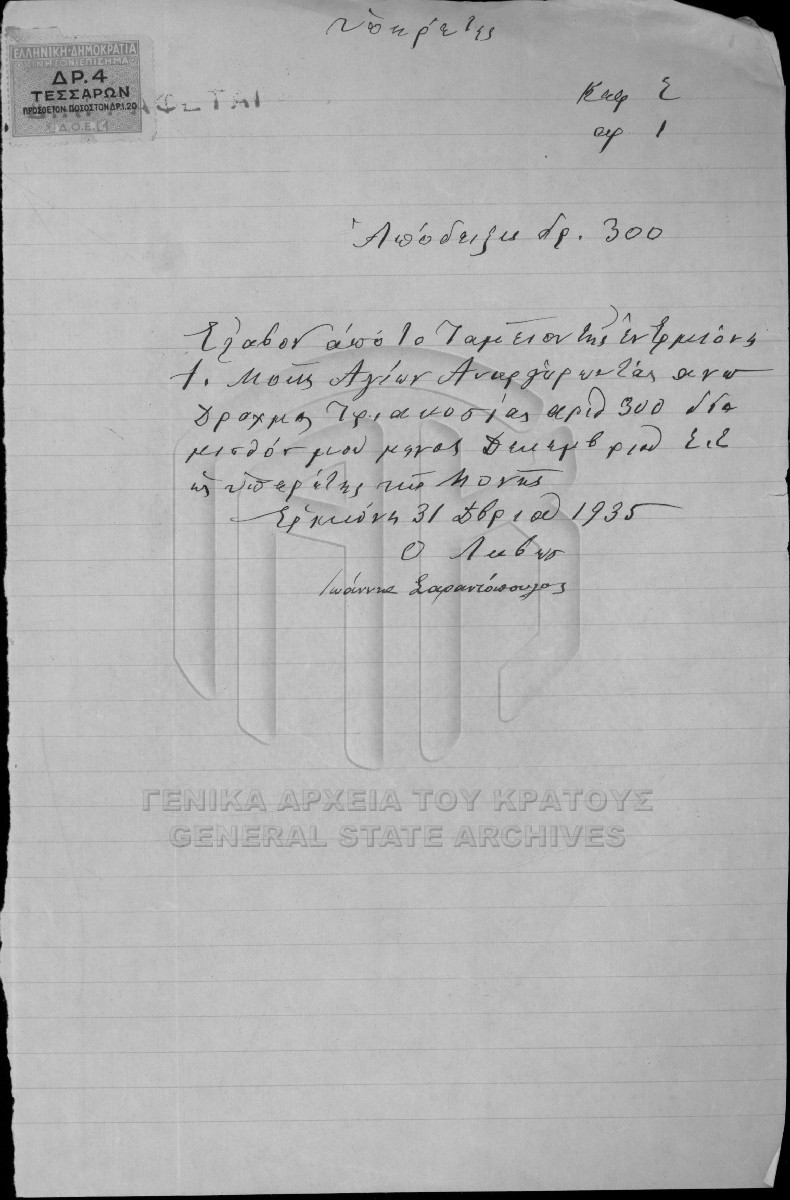 ὑπηρέτης
ΕΛΛΗΝΙΚΗ ΔΗΜΟΚΡΑΤΙΑ
ΔΡ. 4
ΤΕΣΣΑΡΩΝ
ΠΡΟΣΘΕΤΟΝ ΠΟΣΟΣΤΟΝ ΔΡ. 1.20
Κεφ Ε
αρ 1
Ἀπόδειξις δρ. 300
Ελαβον ἀπό το Ταμεῖον της ἐν Ερμιόνη
Ι. Μονῆς Αγίων Αναργύρων τάς ανω
Δραχμας Τριακοσίας αριθ 300 δια
μισθόν μου μηνος Δεκεμβριου ἐ.ἔ
ὡς ὑπηρέτης της Μονῆς
Ερμιόνη 31 Δβριου 1935
Ο Λαβων
Ιωάννης Σαραντόπουλος
ΓΕΝΙΚΑ ΑΡΧΕΙΑ ΤΟΥ ΚΡΑΤΟΥΣ
GENERAL STATE ARCHIVES